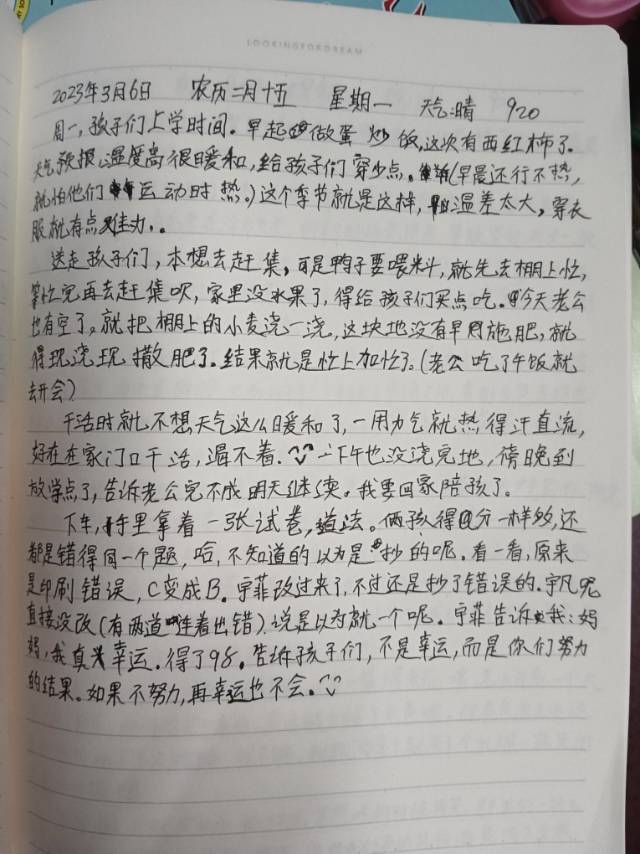 LOOKINGFORDREAM
2023年3月6日 农历二月十五 星期一 天气:晴 920
周一,孩子们上学时间。早起做蛋炒饭,这次有西红柿了。
天气预报,温度高很暖和,给孩子们穿少点。(早晨还行不热,
就怕他们运动时热。)这个季节就是这样,温差太大,穿衣
服就有点难为。
送走孩子们,本想去赶集,可是鸭子要喂料,就先去棚上忙,
忙完再去赶集呗,家里没水果了,得给孩子们买点吃。今天老公
也有空了,就把棚上的小麦浇一浇,这块地没有早施肥,就
得现浇现撒肥了。结果就是忙上加忙了。(老公吃了午饭就
去开会)
干活时就不想天气这么暖和了,一用力气就热得汗直流,
好在在家门口干活,渴不着。一下午也没浇完地,傍晚到
放学点了,告诉老公完不成明天继续。我要回家陪孩了。
下车,手里拿着一张试卷,道法。俩孩得分一样效,还
都是错得同一个题,哈,不知道的以为是抄的呢。看一看,原来
是印刷错误,C变成B。宇菲改过来了,不过还是抄了错误的。宇凡呢
直接没改(有两道连着出错)说是以为就一个呢。宇菲告诉我:妈
妈,我真幸运。得了98。告诉孩子们,不是幸运,而是你们努力
的结果。如果不努力,再幸运也不会。